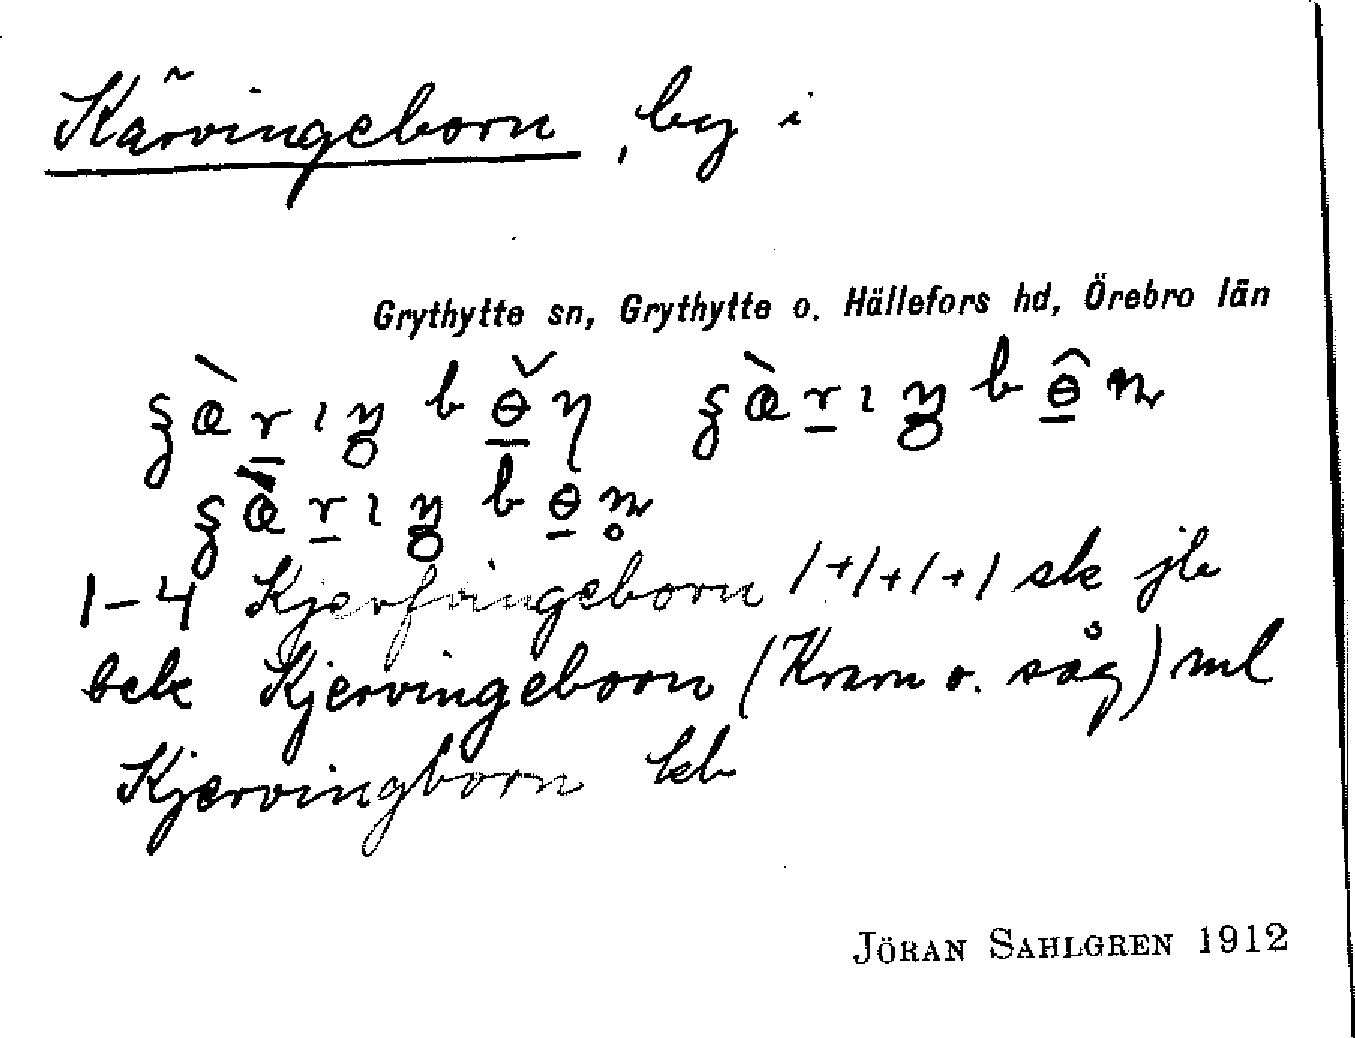 Kärvingeborn, by i
Grythytte sn, Grythytte o. Hällefors hd, Örebro län
1–4 Kjerfvingeborn 1+1+1+1 sk jb
bek Kjervingeborn (Kvarn o. såg) ml
Kjervingborn kb
JÖRAN SAHLGREN 1912